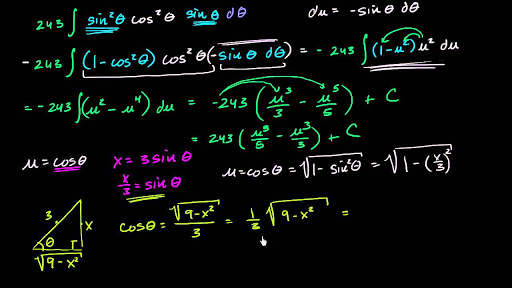 243 ∫ sin²θ cos²θ sinθ dθ    du = -sinθ dθ
-243 ∫ (1-cos²θ) cos²θ (-sinθ dθ) = -243 ∫ (1-u²) u² du
= -243 ∫ (u² - u⁴) du = -243 (u³/3 - u⁵/5) + C
= 243 (u⁵/5 - u³/3) + C
u = cosθ    x = 3 sinθ    u = cosθ = √(1 - sin²θ) = √(1 - (x/3)²)
x/3 = sinθ
3    x    cosθ = √(9-x²)/3 = 1/3 √(9-x²) =
θ
√(9-x²)